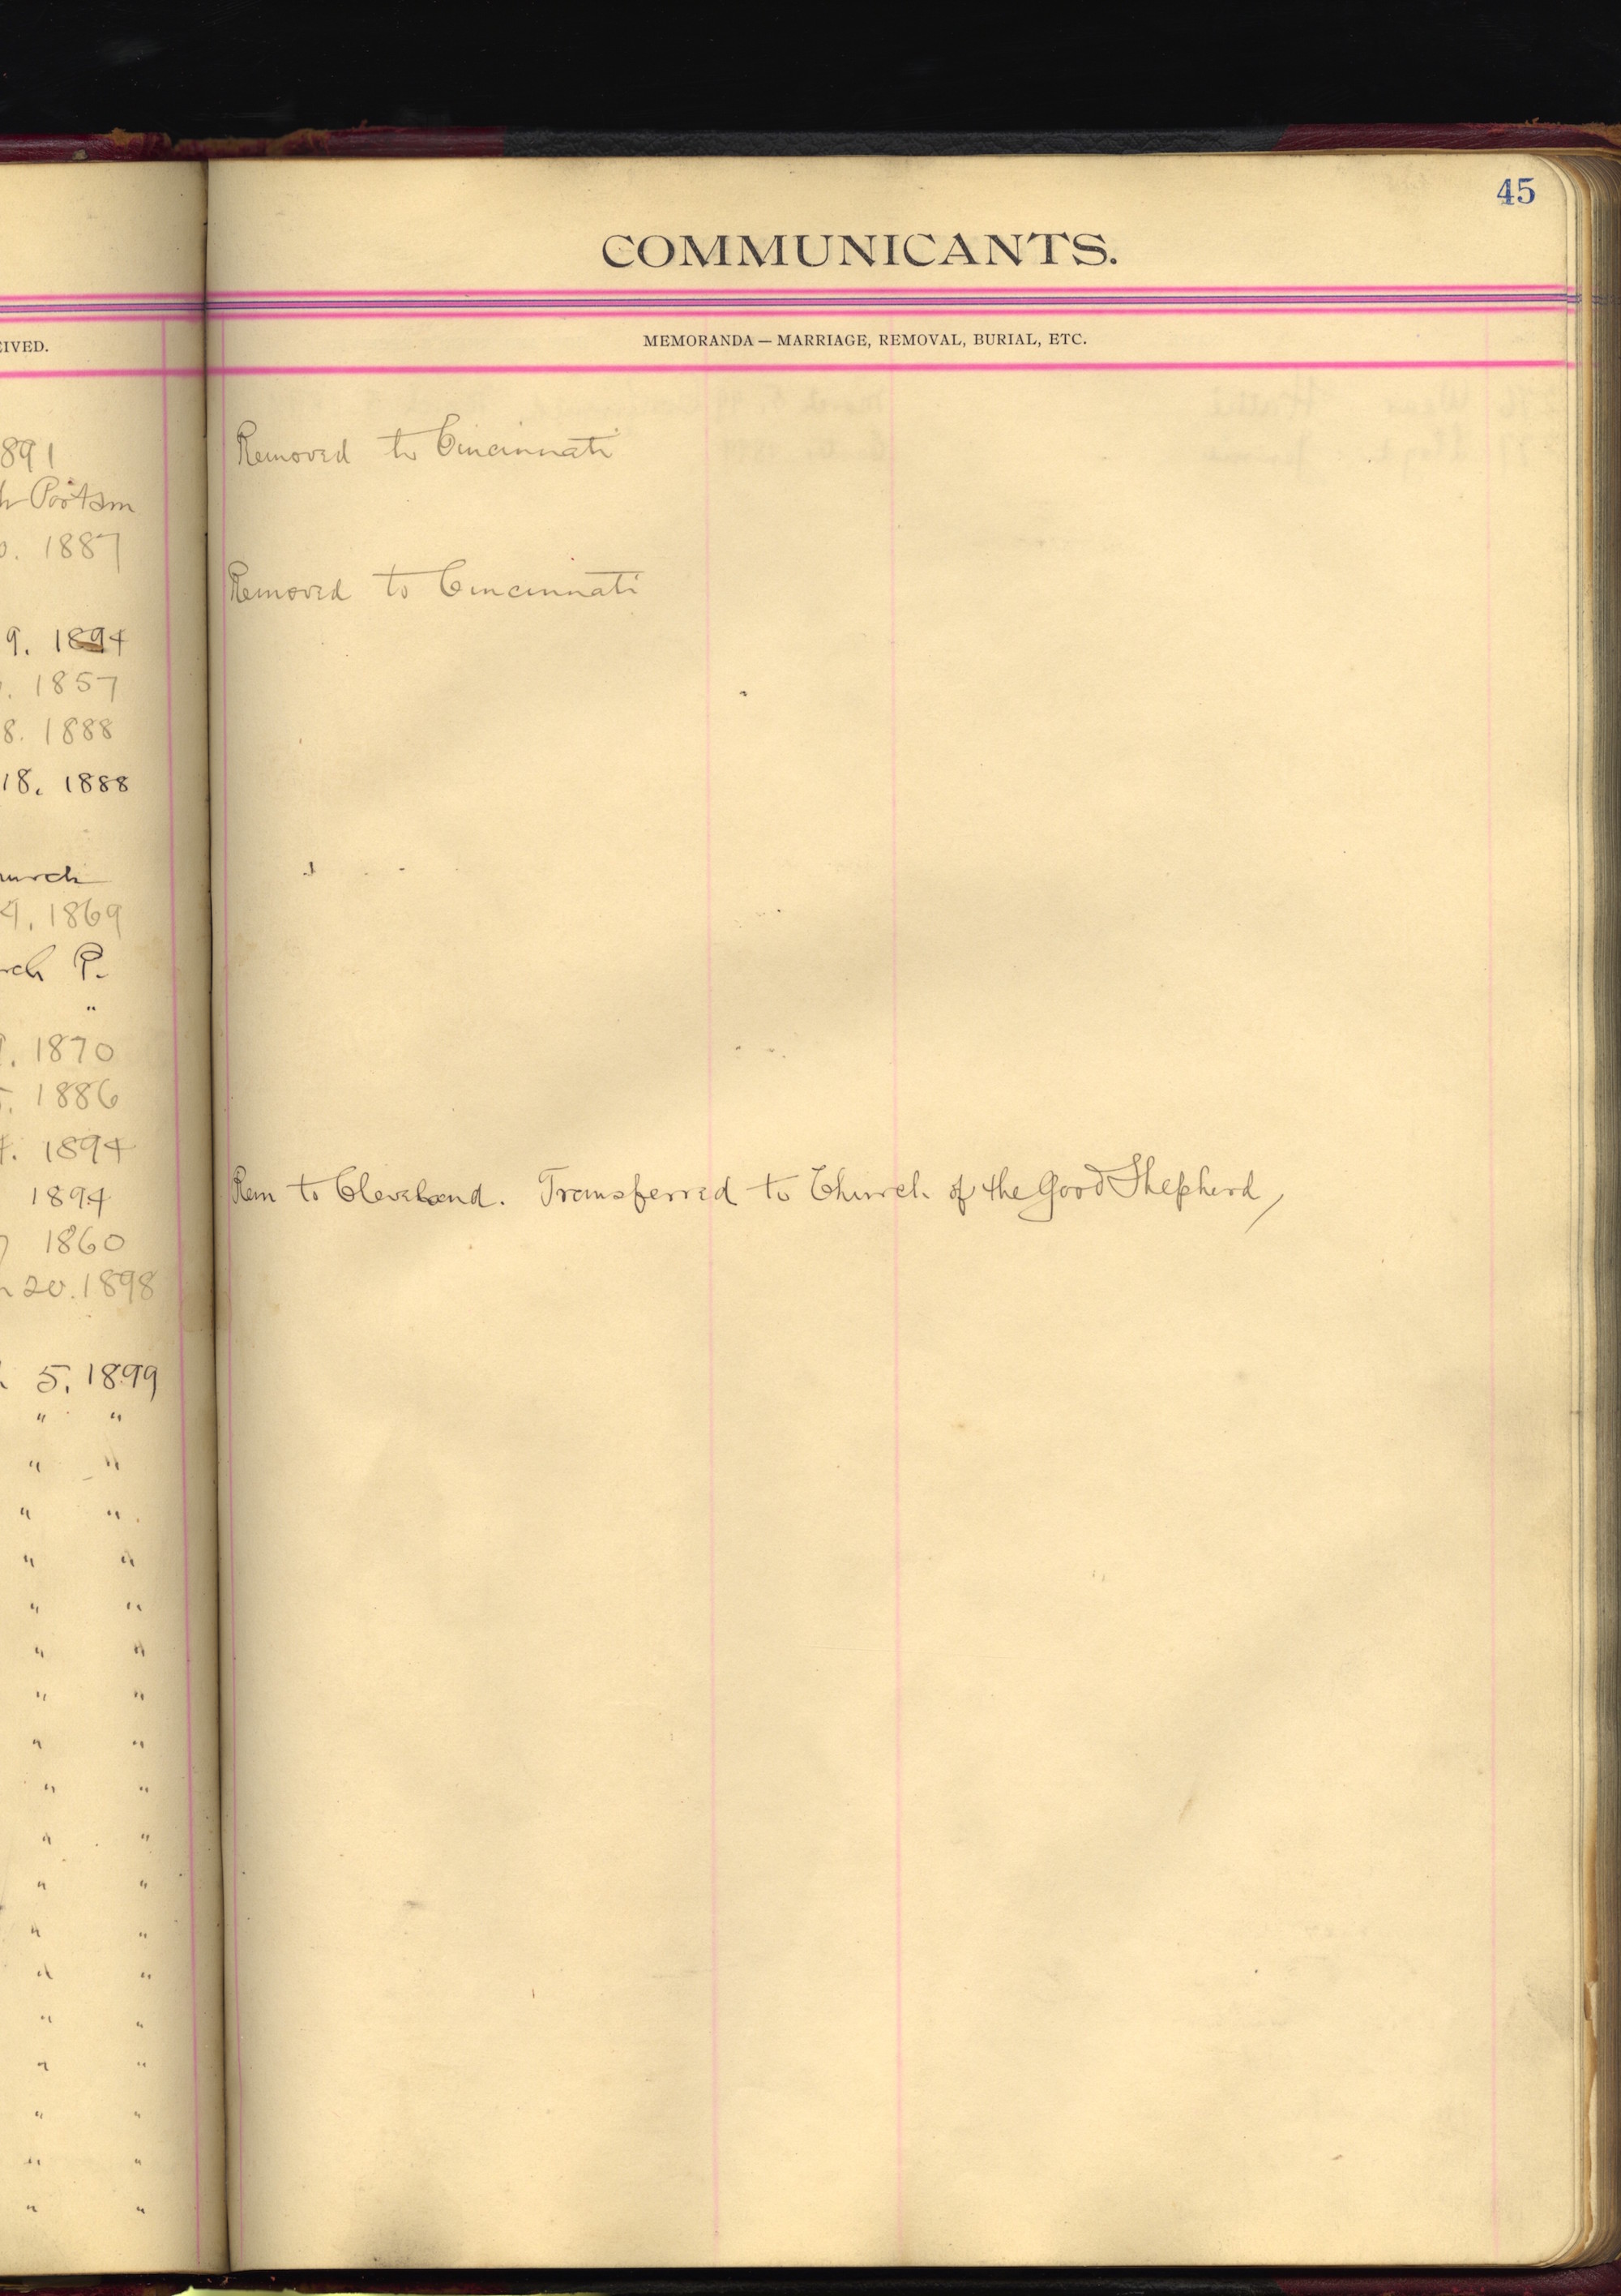 45
COMMUNICANTS.
EIVED.
MEMORANDA — MARRIAGE, REMOVAL, BURIAL, ETC.
891
Removed to Cincinnati
h Portsm
. 1887
Removed to Cincinnati
9. 1894
. 1857
8. 1888
18. 1888
urch
9. 1869
rch P.
"
. 1870
5. 1886
. 1894
1894
Rem to Cleveland. Transferred to Church of the Good Shepherd,
1860
20. 1898
5. 1899
" "
" "
" "
" "
" "
" "
" "
" "
" "
" "
" "
" "
" "
" "
" "
" "
" "
" "